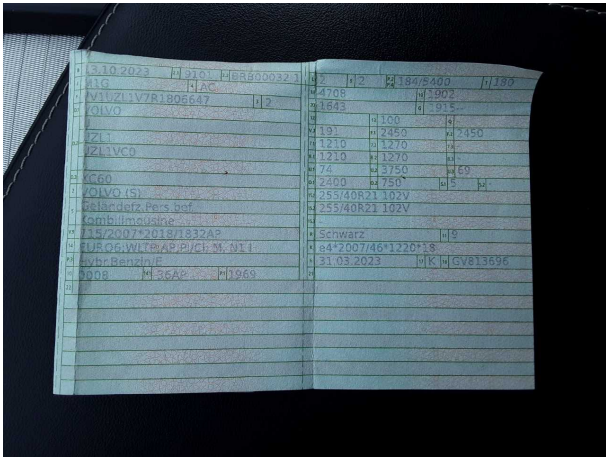 13.10.2023 9101 BRB00032 1
M1G AC
YV1UZL1V7R1806647 2
VOLVO
UZL1
UZL1VC0
XC60
VOLVO (S)
Geländefz.Pers.bef.
Kombilimousine
715/2007*2018/1832AP
EURO6;WLTP;AP;PI/CI; M, N1 I
Hybr.Benzin/E
0008 36AP 1969
2 2 184/5400 180
4708 1902
1643 1915--
100
191 2450 2450
1210 1270
1210 1270
74 3750 69
2400 750 5 -
255/40R21 102V
255/40R21 102V
Schwarz 9
e4*2007/46*1220*18
31.03.2023 K GV813696